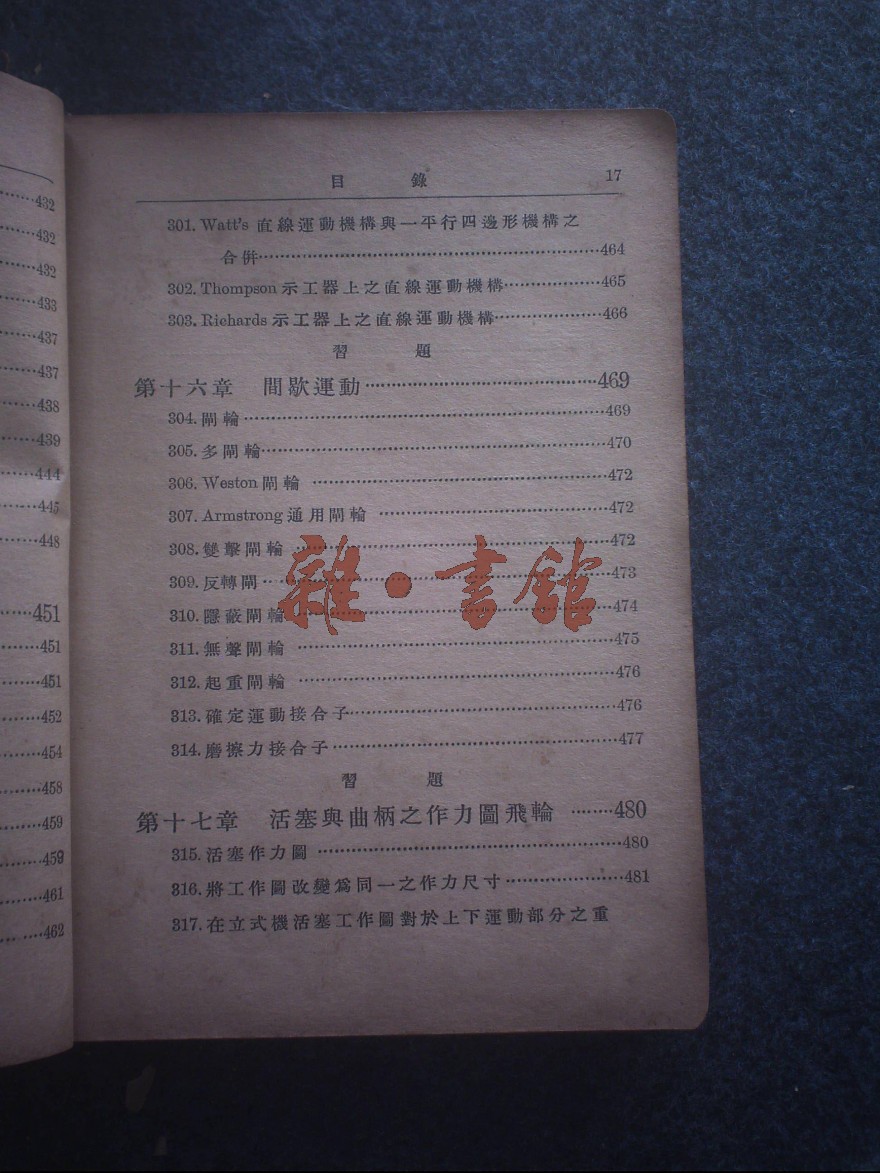 432
432
432
433
437
437
438
439
444
445
448
451
451
451
452
454
458
459
459
461
462
目 錄 17
301. Watt's 直線運動機構與一平行四邊形機構之
合併……464
302. Thompson 示工器上之直線運動機構……465
303. Richards 示工器上之直線運動機構……466
習 題
第十六章 間歇運動……469
304. 閘輪……469
305. 多閘輪……470
306. Weston 閘輪……472
307. Armstrong 通用閘輪……472
308. 雙擊閘輪……472
309. 反轉閘……473
310. 隱蔽閘輪……474
311. 無聲閘輪……475
312. 起重閘輪……476
313. 確定運動接合子……476
314. 磨擦力接合子……477
習 題
第十七章 活塞與曲柄之作力圖飛輪……480
315. 活塞作力圖……480
316. 將工作圖改變爲同一之作力尺寸……481
317. 在立式機活塞工作圖對於上下運動部分之重
雜·書館